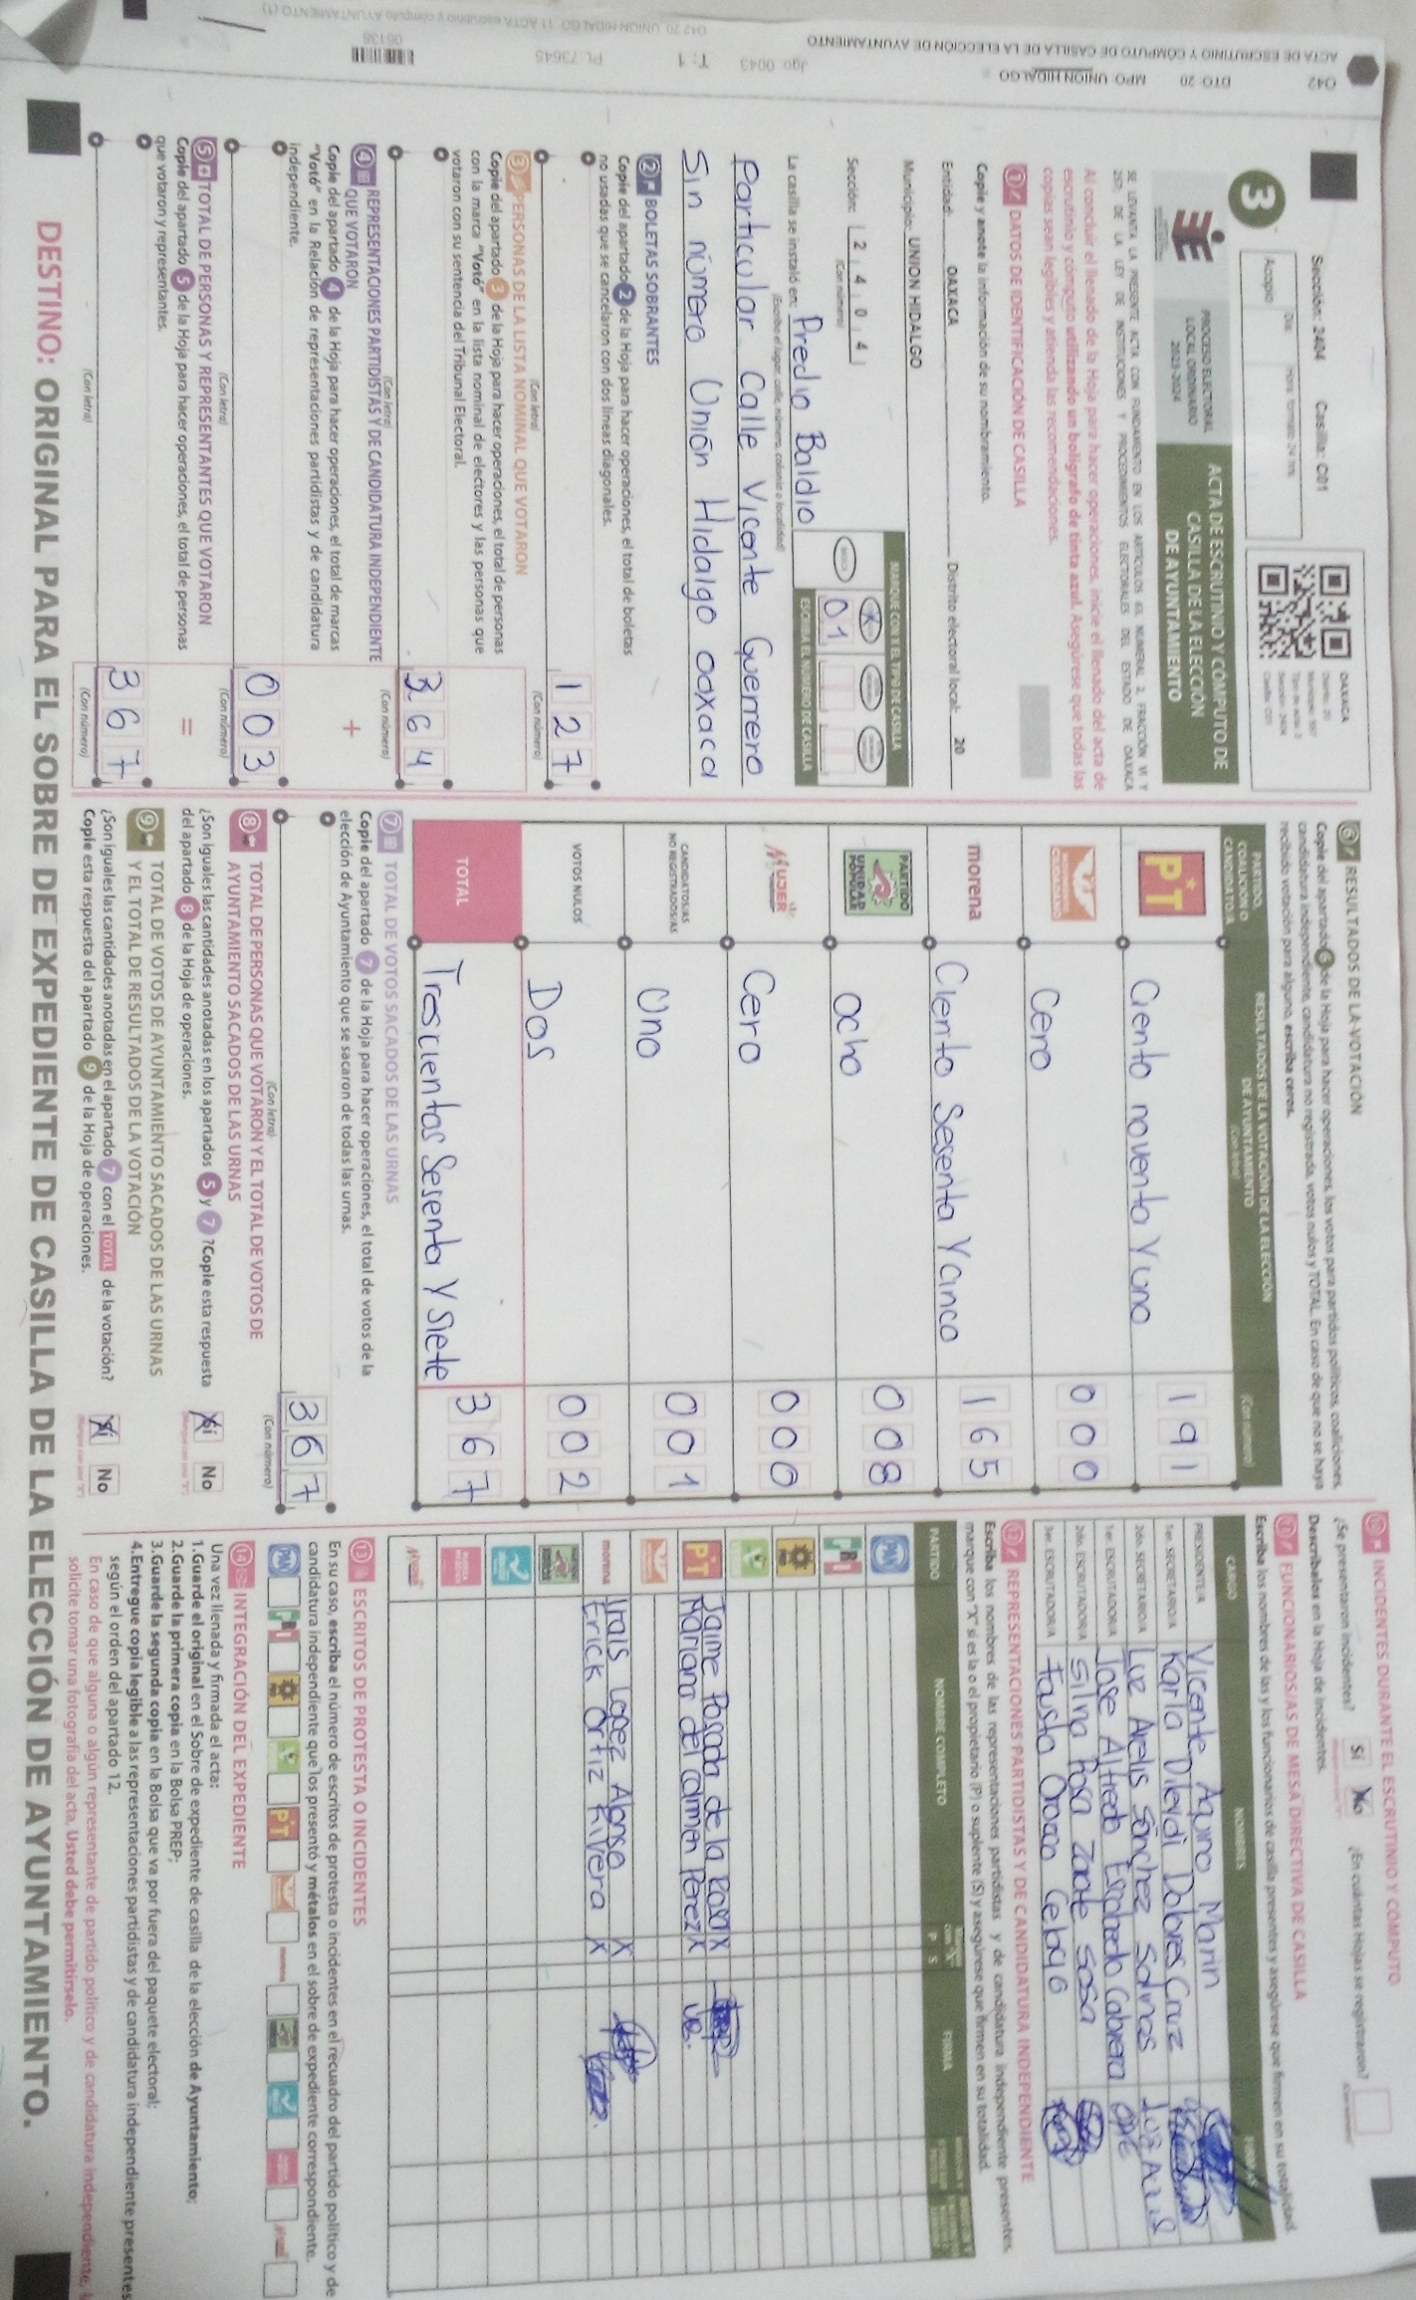 042 DTO: 20 MPO: UNION HIDALGO
ACTA DE ESCRUTINIO Y CÓMPUTO DE CASILLA DE LA ELECCIÓN DE AYUNTAMIENTO
Jgo: 0043 T: 1 PL: 73645
042 20 UNION HIDALGO 11 ACTA escrutinio y cómputo AYUNTAMIENTO (1)
06138
Sección: 2404 Casilla: C01
3
Acopio
Día:
Hora: formato 24 hrs
OAXACA
PROCESO ELECTORAL
LOCAL ORDINARIO
2023-2024
ACTA DE ESCRUTINIO Y CÓMPUTO DE
CASILLA DE LA ELECCIÓN
DE AYUNTAMIENTO
SE LEVANTA LA PRESENTE ACTA CON FUNDAMENTO EN LOS ARTÍCULOS 63, NUMERAL 2, FRACCIÓN VI Y
257; DE LA LEY DE INSTITUCIONES Y PROCEDIMIENTOS ELECTORALES DEL ESTADO DE OAXACA
Al concluir el llenado de la Hoja para hacer operaciones, inicie el llenado del acta de
escrutinio y cómputo utilizando un bolígrafo de tinta azul. Asegúrese que todas las
copias sean legibles y atienda las recomendaciones.
1 DATOS DE IDENTIFICACIÓN DE CASILLA
Copie y anote la información de su nombramiento.
Entidad: OAXACA Distrito electoral local: 20
Municipio: UNION HIDALGO
MARQUE CON X EL TIPO DE CASILLA
Sección: 2 4 0 4
(Con número)
01
ESCRIBA EL NÚMERO DE CASILLA
La casilla se instaló en: Predio Baldio
(Escriba el lugar, calle, número, colonia o localidad)
particular Calle Vicente Guerrero
sin número Unión Hidalgo oaxaca
2 BOLETAS SOBRANTES
Copie del apartado 2 de la Hoja para hacer operaciones, el total de boletas
no usadas que se cancelaron con dos líneas diagonales.
127
(Con letra) (Con número)
3 PERSONAS DE LA LISTA NOMINAL QUE VOTARON
Copie del apartado 3 de la Hoja para hacer operaciones, el total de personas
con la marca "Votó" en la lista nominal de electores y las personas que
votaron con su sentencia del Tribunal Electoral.
364
(Con letra) (Con número)
4 REPRESENTACIONES PARTIDISTAS Y DE CANDIDATURA INDEPENDIENTE
QUE VOTARON
+
Copie del apartado 4 de la Hoja para hacer operaciones, el total de marcas
"Votó" en la Relación de representaciones partidistas y de candidatura
independiente.
003
(Con letra) (Con número)
5 TOTAL DE PERSONAS Y REPRESENTANTES QUE VOTARON
=
Copie del apartado 5 de la Hoja para hacer operaciones, el total de personas
que votaron y representantes.
367
(Con letra) (Con número)
6 RESULTADOS DE LA VOTACIÓN
Copie del apartado 6 de la Hoja para hacer operaciones, los votos para partidos políticos, coaliciones,
candidatura independiente, candidatura no registrada, votos nulos y TOTAL. En caso de que no se haya
recibido votación para alguno, escriba ceros.
PARTIDO, COALICIÓN O CANDIDATO/A
RESULTADOS DE LA VOTACIÓN DE LA ELECCIÓN
DE AYUNTAMIENTO
(Con letra) (Con número)
PT Ciento noventa Y uno 191
Cero 000
morena Ciento Sesenta Y cinco 165
PARTIDO UNIDAD POPULAR ocho 008
MUJER Cero 000
CANDIDATOS/AS NO REGISTRADOS/AS Uno 001
VOTOS NULOS Dos 002
TOTAL Trescientos Sesenta Y siete 367
7 TOTAL DE VOTOS SACADOS DE LAS URNAS
Copie del apartado 7 de la Hoja para hacer operaciones, el total de votos de la
elección de Ayuntamiento que se sacaron de todas las urnas.
367
(Con letra) (Con número)
8 TOTAL DE PERSONAS QUE VOTARON Y EL TOTAL DE VOTOS DE
AYUNTAMIENTO SACADOS DE LAS URNAS
¿Son iguales las cantidades anotadas en los apartados 5 y 7? Copie esta respuesta
del apartado 8 de la Hoja de operaciones.
Sí No
9 TOTAL DE VOTOS DE AYUNTAMIENTO SACADOS DE LAS URNAS
Y EL TOTAL DE RESULTADOS DE LA VOTACIÓN
¿Son iguales las cantidades anotadas en el apartado 7 con el TOTAL de la votación?
Copie esta respuesta del apartado 9 de la Hoja de operaciones.
Sí No
INCIDENTES DURANTE EL ESCRUTINIO Y CÓMPUTO
¿Se presentaron incidentes? Sí No ¿En cuántas Hojas se registraron?
Descríbalos en la Hoja de incidentes.
FUNCIONARIOS/AS DE MESA DIRECTIVA DE CASILLA
Escriba los nombres de las y los funcionarios de casilla presentes y asegúrese que firmen en su totalidad.
CARGO NOMBRES FIRMAS
PRESIDENTE/A Vicente Aquino Marin
1er. SECRETARIO/A Karla Dileydi Dolores Cruz
2do. SECRETARIO/A Luz Arelis Sánchez Salinas
1er. ESCRUTADOR/A Jose Alfredo Escobedo Cabrera
2do. ESCRUTADOR/A Silvia Rosa Zarate Sosa
3er. ESCRUTADOR/A Fausto Orozco
REPRESENTACIONES PARTIDISTAS Y DE CANDIDATURA INDEPENDIENTE
Escriba los nombres de las representaciones partidistas y de candidatura independiente presentes,
marque con "X" si es la o el propietario (P) o suplente (S) y asegúrese que firmen en su totalidad.
PARTIDO NOMBRE COMPLETO P S FIRMA
PAN
PRI
PRD
PT Jaime Posada de la Rosa X
Mariana del Carmen Perez X
morena Irais Lopez Alonso X
Erick Ortiz Rivera X
13 ESCRITOS DE PROTESTA O INCIDENTES
En su caso, escriba el número de escritos de protesta o incidentes en el recuadro del partido político y de
candidatura independiente que los presentó y métalos en el sobre de expediente correspondiente.
PAN PRI PRD PT
14 INTEGRACIÓN DEL EXPEDIENTE
Una vez llenada y firmada el acta:
1.Guarde el original en el Sobre de expediente de casilla de la elección de Ayuntamiento;
2.Guarde la primera copia en la Bolsa PREP;
3.Guarde la segunda copia en la Bolsa que va por fuera del paquete electoral;
4.Entregue copia legible a las representaciones partidistas y de candidatura independiente presentes
según el orden del apartado 12.
En caso de que alguna o algún representante de partido político y de candidatura independiente,
solicite tomar una fotografía del acta, Usted debe permitírselo.
DESTINO: ORIGINAL PARA EL SOBRE DE EXPEDIENTE DE CASILLA DE LA ELECCIÓN DE AYUNTAMIENTO.